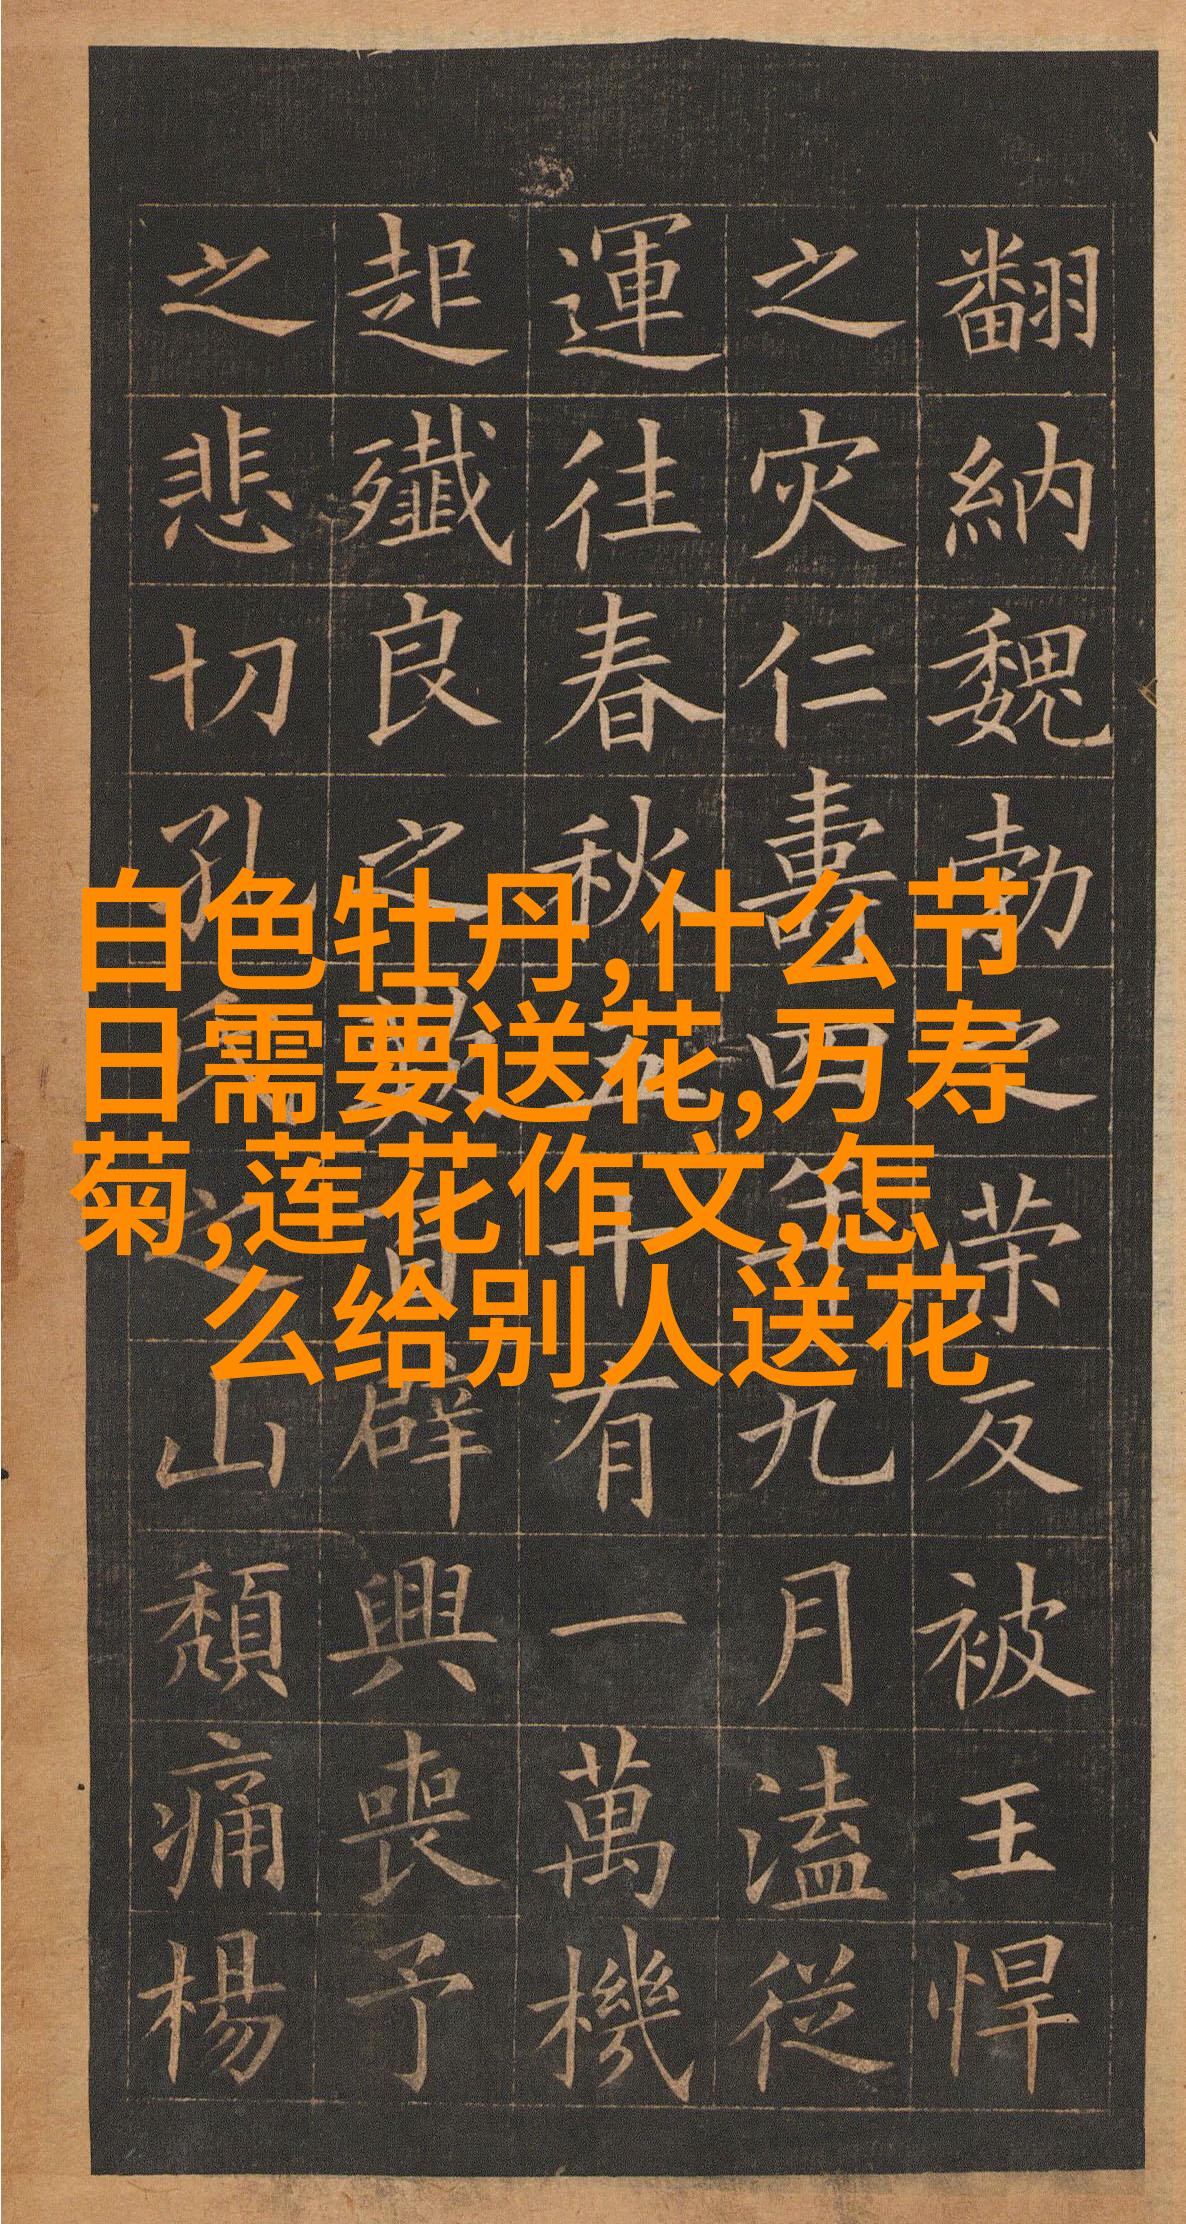 翻納魏勃之反被王悍
之灾仁壽四年九月溘從
運往春秋五十有一萬機
起殲良之歎百辟興喪予
之悲切孔之山頹痛楊
白色牡丹,什么节
日需要送花,万寿
菊,莲花作文,怎
么给别人送花